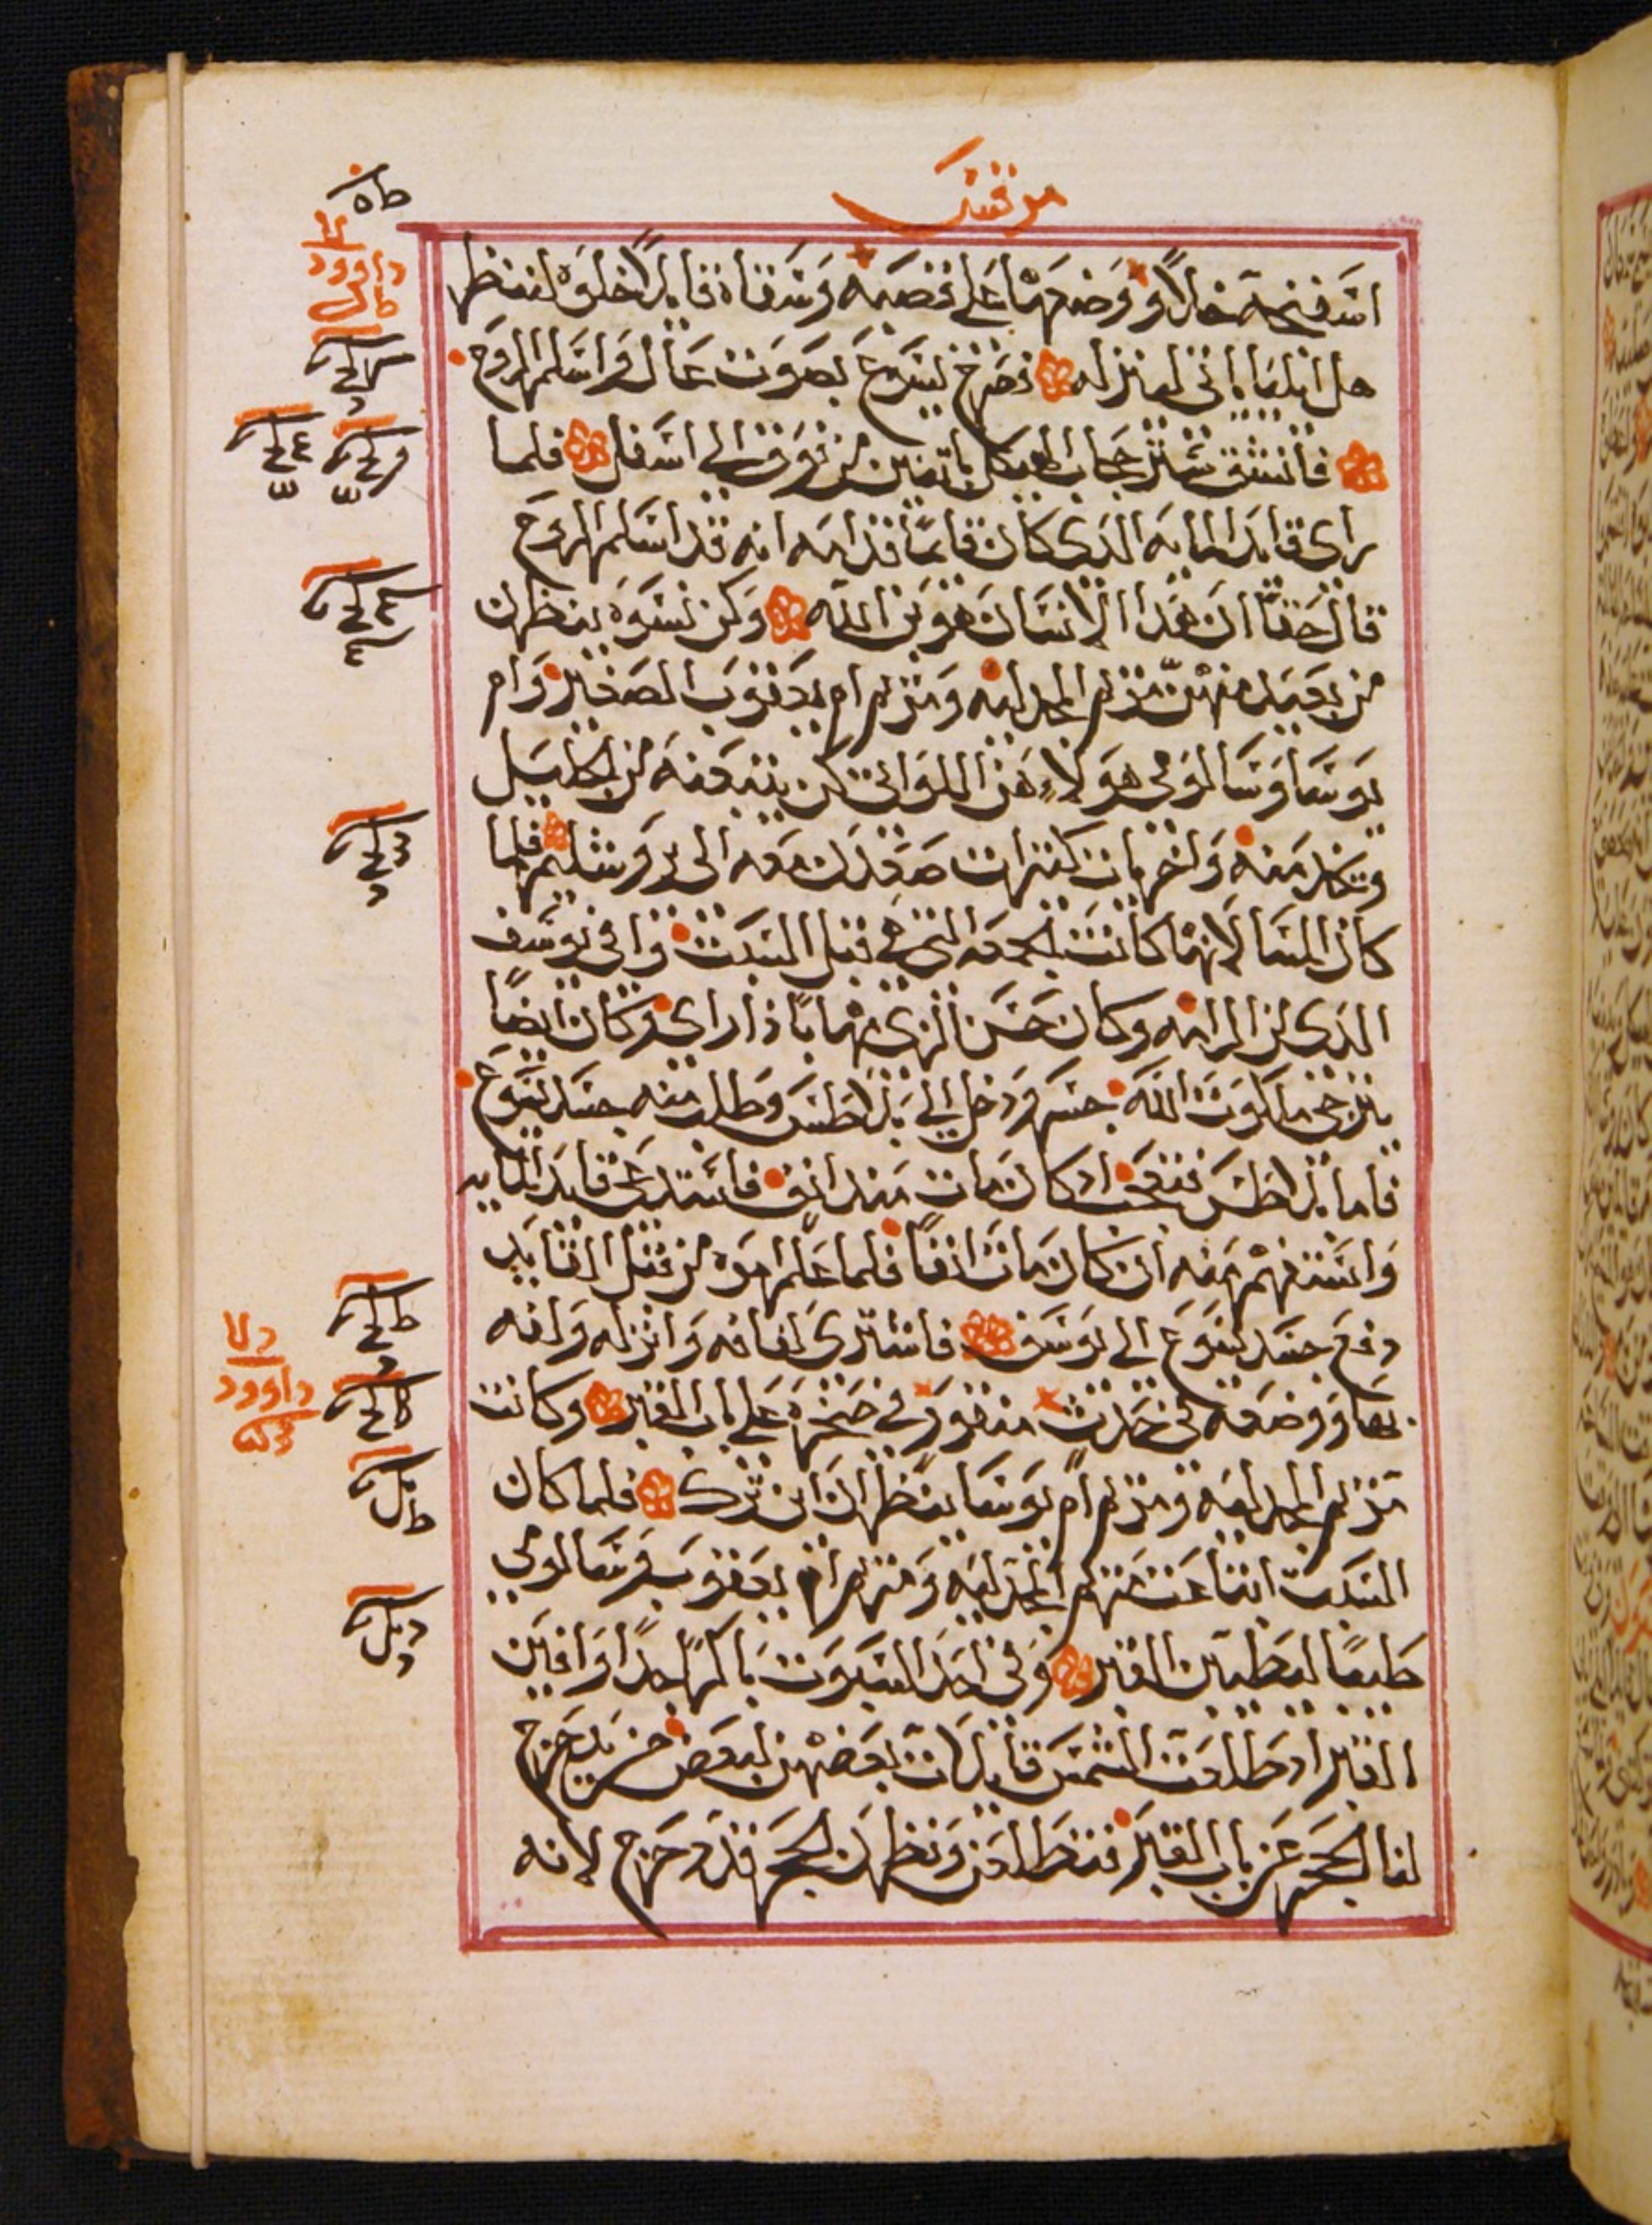 مرقس
اسفنجة خلاً ووضعها على قصبه وسقاه قايلاً خلوه لننظر
هل ايليا ياتي لينزله فصرخ يسوع بصوت عال واسلم الروح
فانشق ستر حجاب الهيكل باثنين من فوق الى اسفل فلما
راى قايد المايه الذى كان قايماً قدامه انه قد اسلم الروح
قال حقاً ان هذا الانسان هو بن الله وكن نسوه ينظرن
من بعيد منهن مريم المجدليه ومريم ام يعقوب الصغير وام
يوسا وسالومي هولاء هن اللواتى كن يتبعنه من الجليل
ويخدمنه واخريات كثيرات صعدن معه الى يروشليم فلما
كان المسا لانها كانت الجمعه التي هي قبل السبت وافى يوسف
الذى من الرامه وكان حسن الزى مهاباً ذا راى وكان ايضاً
يترجى ملكوت الله جسر ودخل الى بيلاطس وطلب منه جسد يسوع
فاما بيلاطس فتعجب اد كان مات منذ انف فاستدعى قايد المايه
واستفهم منه ان كان مات انفاً فلما علم امره من قبل القايد
دفع جسد يسوع الى يوسف فاشترى لفافه وانزله ولفه
بها ووضعه في حدث منقور في صخره على باب القبر وكانت
مريم المجدليه ومريم ام يوسا ينظران اين ترك فلما كان
السبت ابتاعت مريم المجدليه ومريم ام يعقوب وسالومي
طيباً ليطيبن القبر وفي احد السبوت باكراً جداً وافين
القبر اد طلعت الشمس قايلات بعضهن لبعض من يدحرج
لنا الحجر عن باب القبر فتطلعن ونظرن الحجر قد دحرج لانه
داوود
داوود